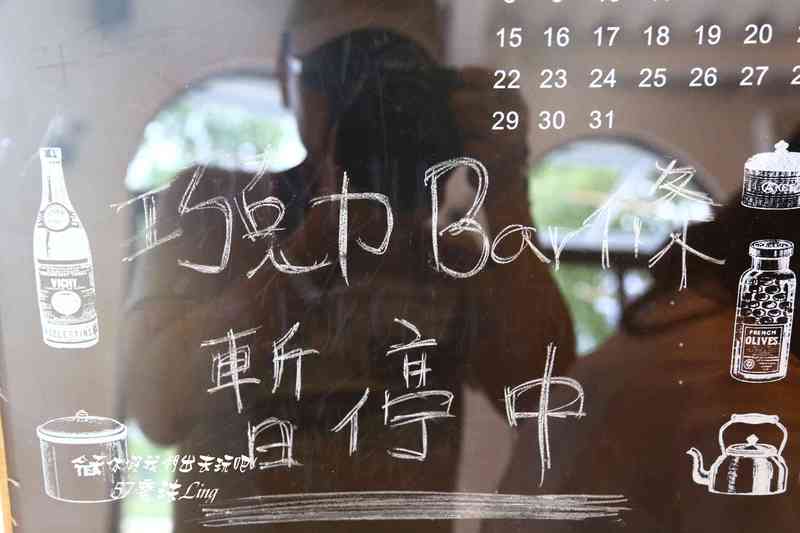 15 16 17 18 19 20
22 23 24 25 26 27
29 30 31
巧克力 Bar 條
暫停中
VICHY
CELESTINS
FRENCH
OLIVES
今天你跟我們出去玩吧!
Ling